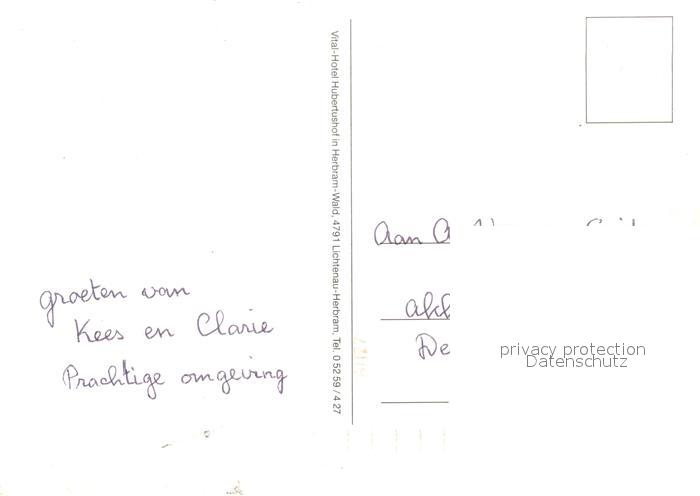 groeten van
Kees en Clarie
Prachtige omgeving
Vital-Hotel Hubertushof in Herbram-Wald, 4791 Lichtenau-Herbram, Tel. 0 52 59 / 4 27
Aan
De
privacy protection
Datenschutz